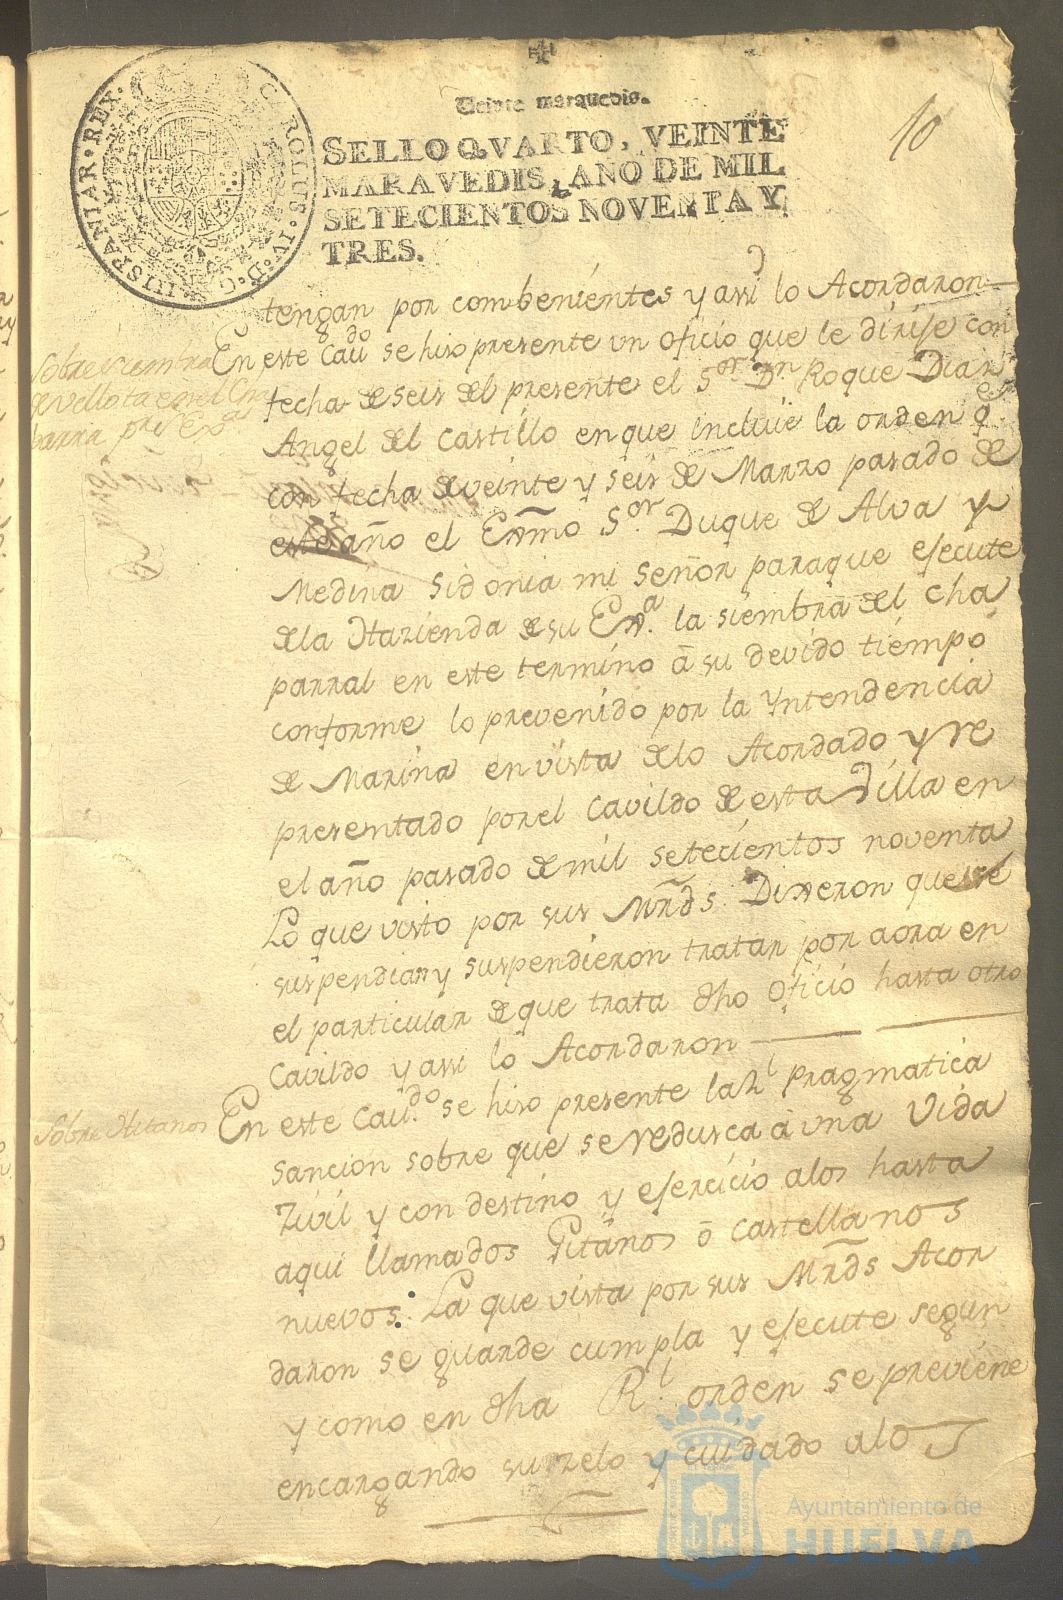 CAROLUS · IV · D · G · HISPANIAR · REX ·
Veinte maravedis.
10
SELLO QVARTO, VEINTE
MARAVEDIS, AÑO DE MIL
SETECIENTOS NOVENTA Y
TRES.
tengan por combenientes y assi lo Acordaron
En este Cav.do se hiso presente un oficio que le dirise con
fecha de seis del presente el S.or D.n Roque Diaz
Angel del Castillo en que incluie la orden q.e
con fecha de veinte y seis de Marzo pasado de
este año el Exmo S.or Duque de Alva y
Medina Sidonia mi señor paraque esecute
de la Hazienda de su Ex.a la siembra del Cha
parral en este termino â su devido tiempo
conforme lo prevenido por la Yntendencia
de Marina en vista de lo Acordado y re
presentado por el Cavildo de esta Villa en
el año pasado de mil setecientos noventa
Lo que visto por sus Mrds. Dixeron que se
suspendian y suspendieron tratar por aora en
el particular de que trata dho Oficio hasta otro
Cavildo y assi lo Acordaron
Sobre Gitanos
En este Cav.do se hiso presente la R.l pragmatica
sancion sobre que se redusca â una Vida
Zivil y con destino y esercicio alos hasta
aqui llamados Gitanos ô castellanos
nuevos: La que vista por sus Mrds Acor
daron se guarde cumpla y esecute segun
y como en dha R.l orden se previene
encargando su zelo y cuidado alos
Ayuntamiento de
HUELVA